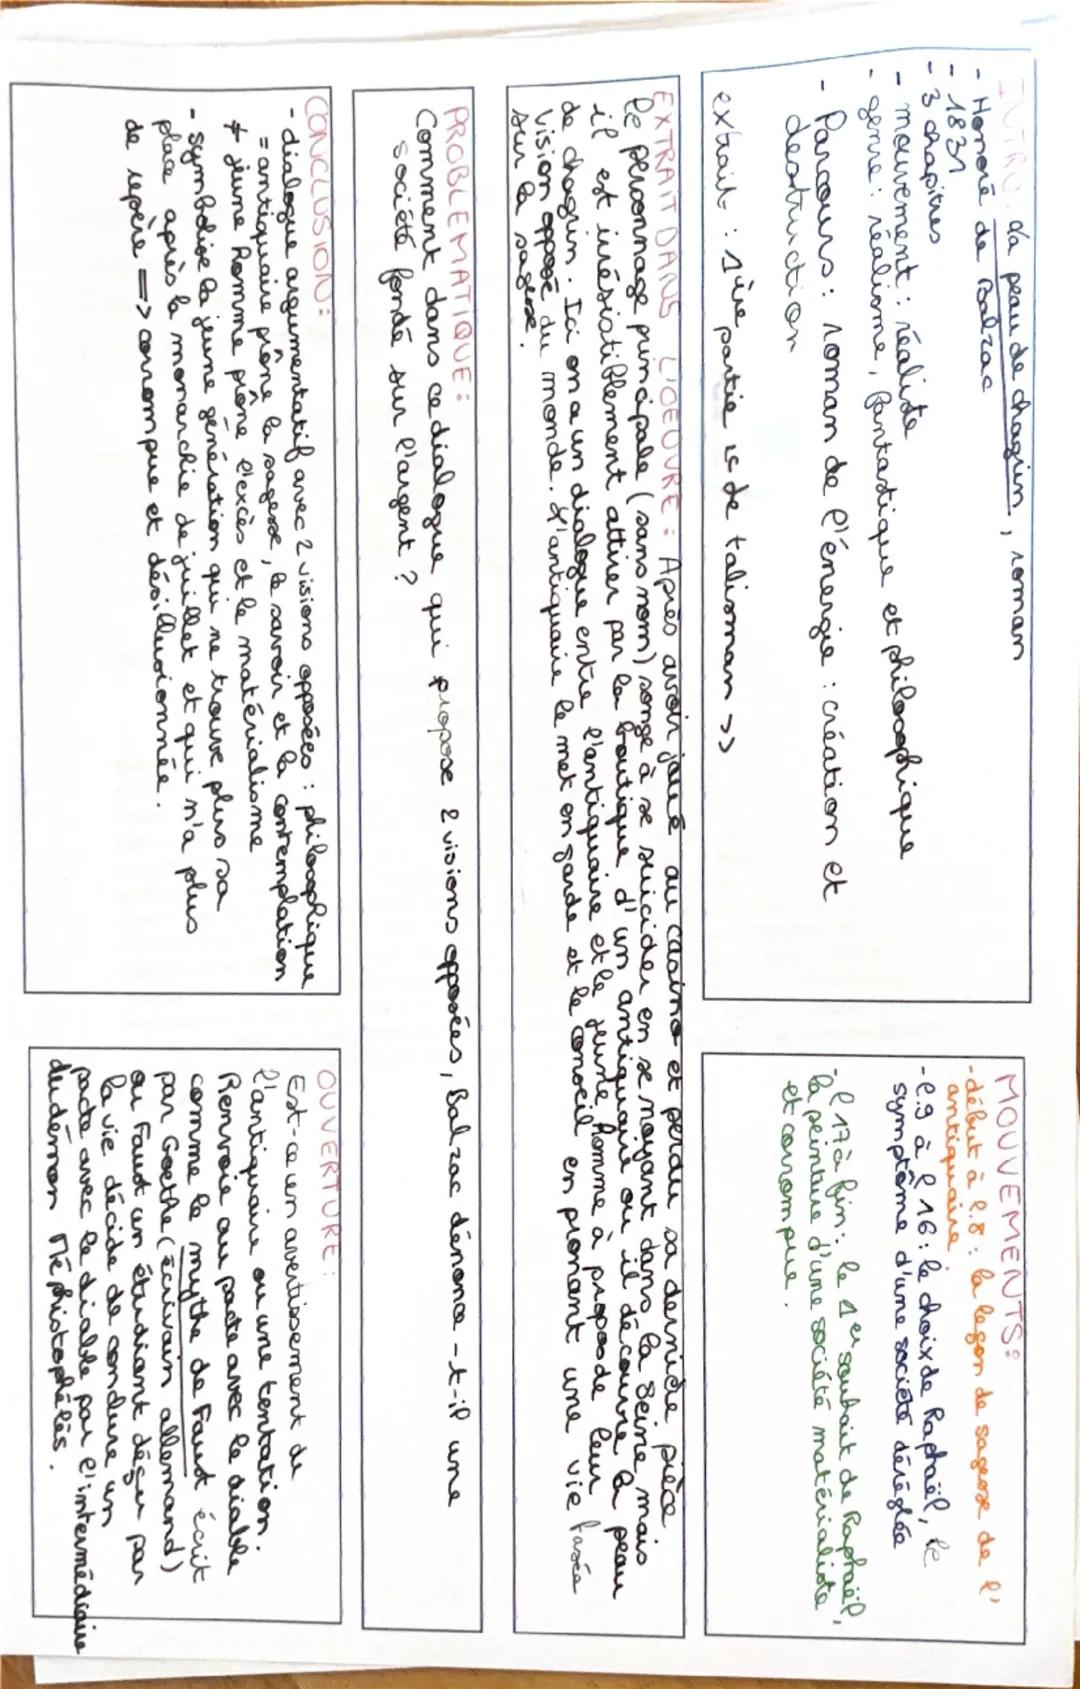 INTRO: La peau de chagrin, roman
- Honoré de Balzac
- 1831
- 3 chapitres
- mouvement : réaliste
- genre : réalisme, fantastique et philosophique
- Parcours : roman de l'énergie : création et
destruction
extrait : 1ère partie << de talisman >>
MOUVEMENTS:
- début à l.8 : la leçon de sagesse de l'
antiquaire
- l.9 à l 16 : le choix de Raphaël, le
symptôme d'une société déréglée
- l 17 à fin : le 1er souhait de Raphaël,
la peinture d'une société matérialiste
et corrompue.
EXTRAIT DANS L'OEUVRE : Après avoir joué au casino et perdu sa dernière pièce
le personnage principale (sans nom) songe à se suicider en se noyant dans la Seine, mais
il est irrésistiblement attirer par la boutique d'un antiquaire ou il découvre la peau
de chagrin. Ici on a un dialogue entre l'antiquaire et le jeune homme à propos de leur
vision opposé du monde. L'antiquaire le met en garde et le conseil en pronant une vie basée
sur la sagesse.
PROBLEMATIQUE :
Comment dans ce dialogue qui propose 2 visions opposées, Balzac dénonce-t-il une
société fondé sur l'argent ?
CONCLUSION :
- dialogue argumentatif avec 2 visions opposées : philosophique
= antiquaire prône la sagesse, le savoir et la contemplation
≠ jeune homme prône l'excès et le matérialisme
- symbolise la jeune génération qui ne trouve plus sa
place après la monarchie de juillet et qui n'a plus
de repère => corrompue et désillusionnée.
OUVERTURE :
Est-ce un avertissement de
l'antiquaire ou une tentation.
Renvoie au pacte avec le diable
comme le mythe de Faust écrit
par Goethe (écrivain allemand)
ou Faust un étudiant déçu par
la vie décide de conclure un
pacte avec le diable par l'intermédiaire
du démon Méphistophélès.